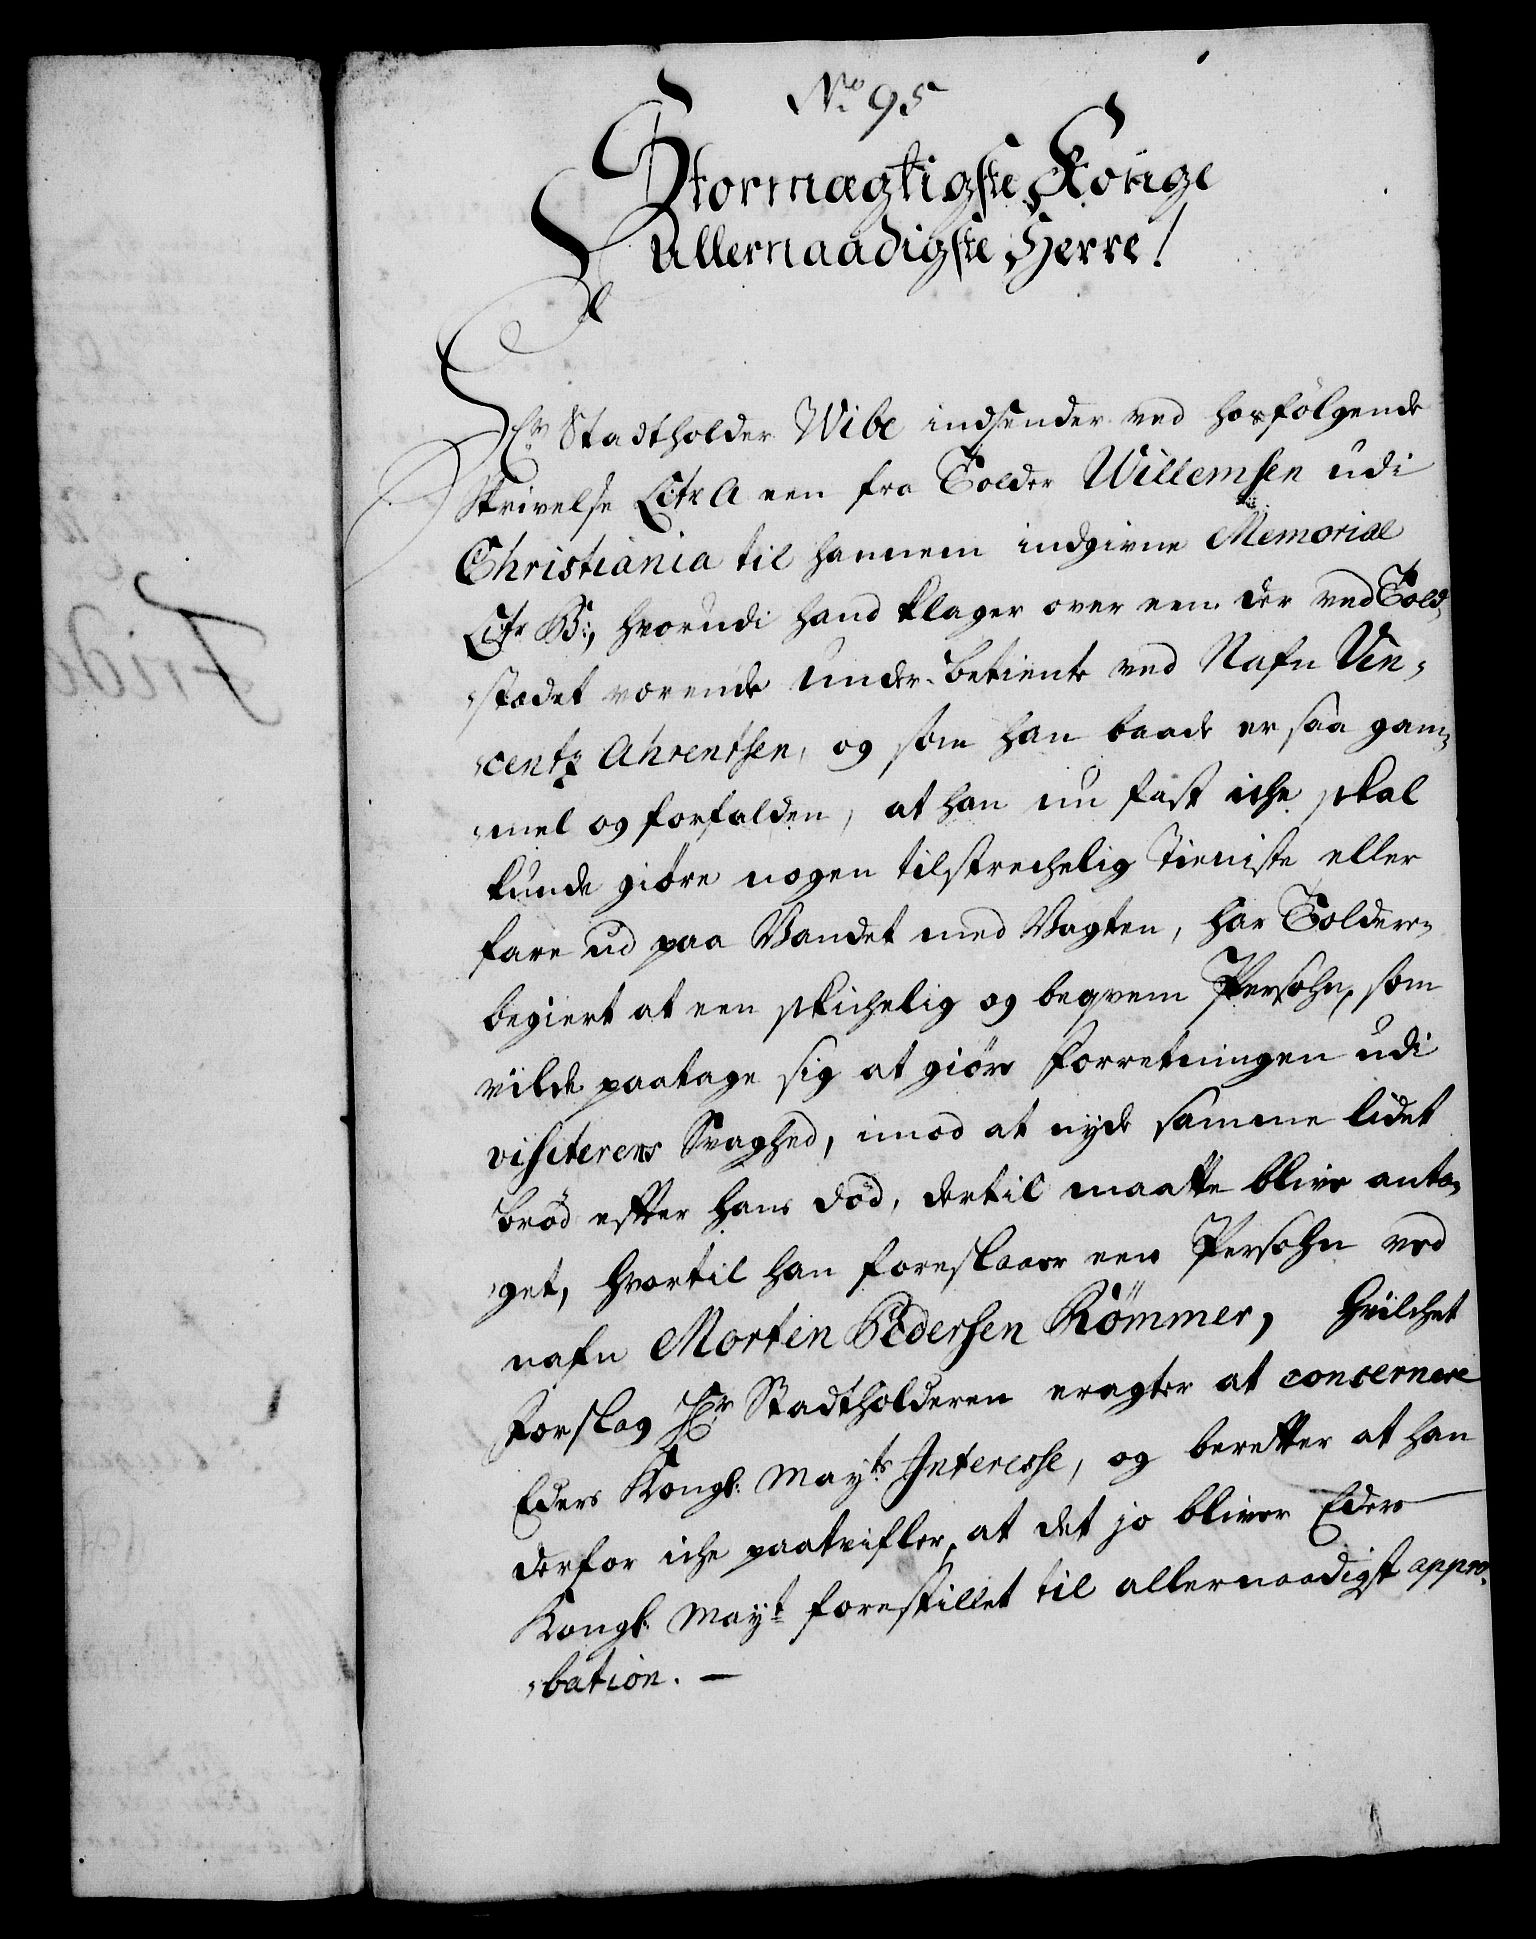 No. 95
Stormægtigste Konge
Allernaadigste Herre!
Hr Stadtholder Wibe indsender ved hosfölgende
Skrivelse Litr A een fra Tolder Willemsen udi
Christiania til hannem indgivne Memorial
Litr B:, hvorudi hand klager over een der ved Told,
,stædet værende Under-betiente ved Nafn Vin,
,centz Ahrentsen, og som han baade er saa gam,
,mel og forfalden, at han nu fast iche skal
kunde giöre nogen tilstrechelig Tieniste eller
fare ud paa Vandet med Vagten, har Tolderen
begiert at een skichelig og beqvem Persohn, som
vilde paatage sig at giöre Forretningen udi
visiterens Svaghed, imod at nyde samme lidet
bröd efter hans död, dertil maatte blive anta,
,get, hvortil han foreslaaer een Persohn ved
nafn Morten Pedersen Römmer, hvilchet
Forslag Hr Stadtholderen eragter at concernere
Eders Kongl: Mayts Interesse, og beretter at han
derfor iche paatvifler, at det jo bliver Eders
Kongl: Mayt forestillet til allernaadigst appro,
,bation. —
Frid